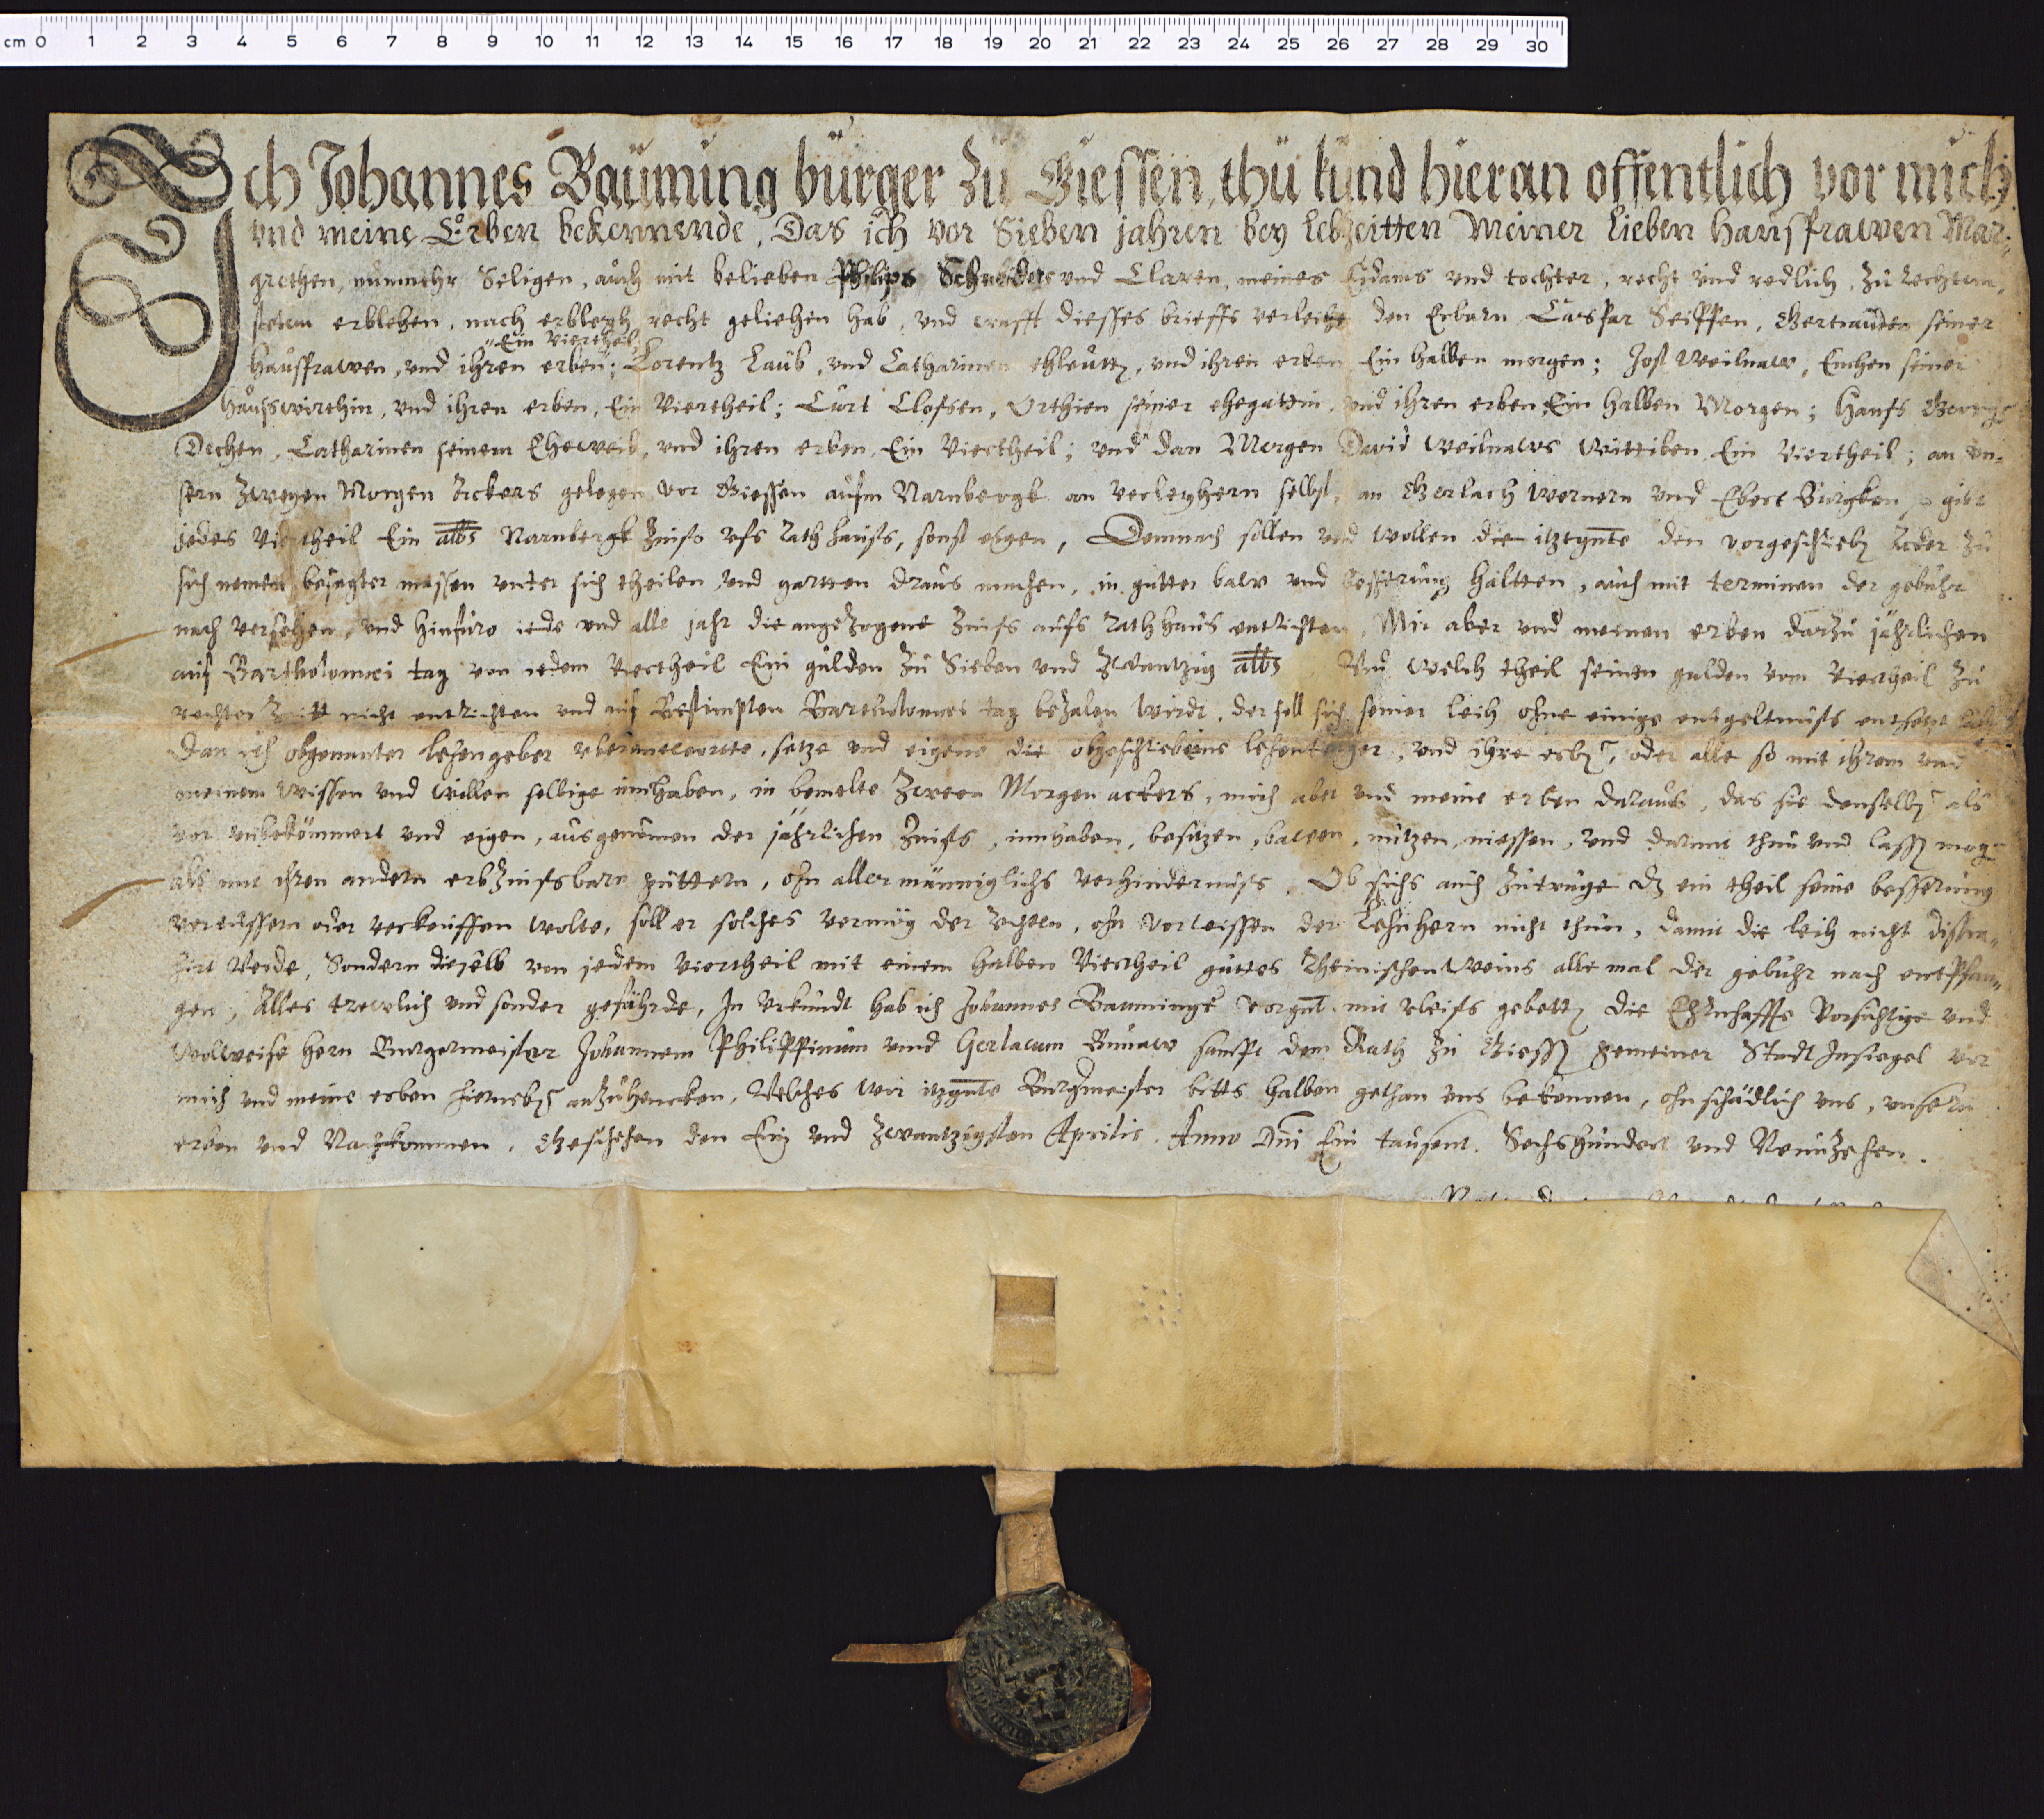 cm 0 1 2 3 4 5 6 7 8 9 10 11 12 13 14 15 16 17 18 19 20 21 22 23 24 25 26 27 28 29 30
Ich Johannes Bauming burger zu Giessen, thu kund hieran offentlich vor mich
vnd meine Erben bekennende, Das ich vor Sieben jahren bey lebzeitten Meiner lieben hausfrawen Mar-
grethen, nunmehr Seligen, auch mit belieben Philips Schneiders vnd Claren, meines Eidams vnd tochter, recht vnd redlich, zu rechtem
stetem erblehen, nach erbleyh recht geliehen hab, vnd crafft dieses brieffs verleihe den Erbarn Caspar Seipffen, Gertrauden seiner
Ein Viertheil
hausfrawen, vnd ihren erben; Lorentz Laub, vnd Catharinen ehleutt, vnd ihren erben Ein halben morgen; Jost Weilnaw, Enchen seiner
hauswirthin, vnd ihren erben, Ein Viertheil; Curt Closen, Orthien seiner ehegattin, vnd ihren erben Ein halben Morgen; Hans George
Dechen, Catharinen seinem Eheweib, vnd ihren erben, Ein Viertheil; vnd dan Morgen David Weilnaws Wittiben Ein Viertheil; an vn-
sern zweyen Morgen Ackers gelegen vor Giessen aufm Narnbergk an verleyhern selbst, an Gerlach Wernern vnd Ebert Burgken, gibt
jedes Viertheil Ein albs Narnbergk Zinss vfs Rathhauss, sonst eigen, Demnach sollen vnd wollen die itztgnte den vorgeschrieb Acker zu
sich nemen besagter massen vnter sich theilen, vnd gartten draus machen, in gutter baw vnd besserung haltten, auch mit terminen der gebuhr
nach versehen, vnd hinfuro iede vnd alle jahr die angezogene Zinss aufs Rathhaus entrichten, Mir aber vnd meinen erben darzu jährlichen
auf Bartholomei tag von iedem Viertheil Ein gulden zu Sieben vnd Zwantzig albs Vnd welch theil seinen gulden vom Viertheil zu
rechter Zeitt nicht entrichten vnd auf Bestimpten Bartholomei tag bezalen wirdt, der soll sich seiner leih ohne einige entgeltnuss entsetzt
Dan ich obgenanter lehengeber vberantwortte, setze vnd eigene die obgeschriebene lehentreger, vnd ihre erb, oder alle so mit ihrem vnd
meinem wissen vnd willen selbige innhaben, in bemelte Zween Morgen ackers, mich aber vnd meine erben daraus, das sie denselb als
vor vnbekömmert vnd eigen, ausgenomen der jährlichen Zinss, innhaben, besitzen, bawen, nutzen, niessen, vnd darmit thun vnd lass mog
als mit ihren andern erbzinssbarn guttern, ohn allermänniglichs verhindernuss, Ob sichs auch zutruge dz ein theil seine besserung
vereussern oder verkeuffen wolte, soll er solches vermög der rechten, ohn vorwissen der Lehnhern nicht thun, damit die leih nicht distra-
hirt werde, Sondern dieselb von jedem Viertheil mit einem halben Viertheil guttes Rheinischen Weins alle mal der gebuhr nach entpfan-
gen, Alles trewlich vnd sonder gefährde, In vrkundt hab ich Johannes Bauminge vorgnt mit vleiss gebett die Ehrnhaffte Vorsichtige vnd
Wolweise hern Burgermeister Johannem Philippinum vnnd Gerlacum Bunaw sampt dem Rath zu Giess gemeiner Stadt Insiegel vor
mich vnd meine erben hierneb anzuhencken, Welches wir itzgnte Burgmeister betts halben gethan vns bekennen, ohn schädlich vns, vnsern
erben vnd Nachkommen. Geschehen den Ein vnd Zwantzigsten Aprilis. Anno Dni Ein tausent. Sechshundert vnd Neunzehen.